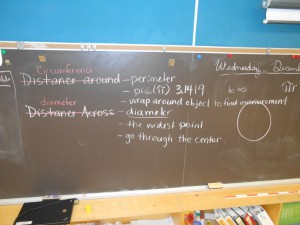 Circumference
Distance around - perimeter
- pie (π) 3.1419 to ∞
diameter - wrap around object to find measurement
Distance Across - diameter
- the widest point
- go through the center
Wednesday,
πr